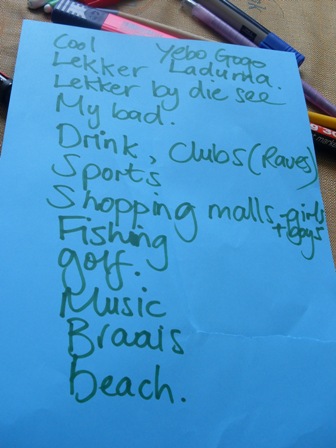 Cool Yebo Gogo
Lekker Laduma.
Lekker by die see
My bad.
Drink, Clubs (Raves)
Sports
Shopping malls - girls
+ boys
Fishing
golf.
Music
Braais
beach.